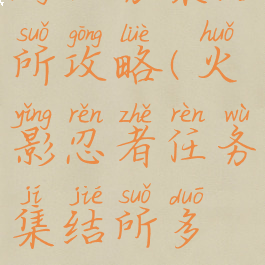 suǒ gōng lüè huǒ
所攻略(火
yǐng rěn zhě rèn wù
影忍者任务
jí jié suǒ duō
集结所多